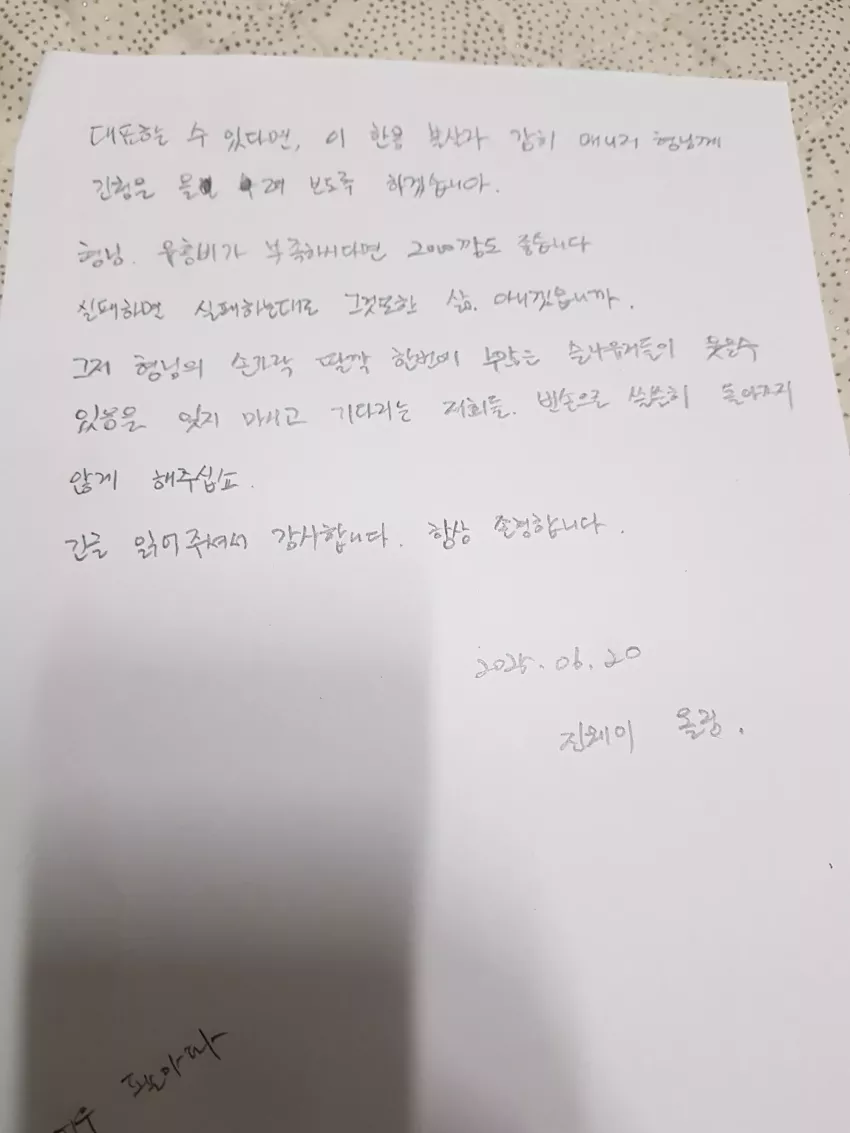 대표하는 수 있다면, 이 한몸 불사 감히 매니저 형님께
진청을 올려 보도록 하겠습니다.
형님. 유흥비가 부족하시다면 2000깡도 좋습니다
실패하면 실패하는대로 그것또한 삶. 아니겠습니까.
그저 형님의 손가락 딸깍 한번에 수많은 슬나유저들이 웃을수
있음을 잊지 마시고 기다리는 저희들. 빈손으로 쓸쓸히 돌아가지
않게 해주십쇼.
긴글 읽어주셔서 감사합니다. 항상 존경합니다.
2025.06.20
진웨이 올림.